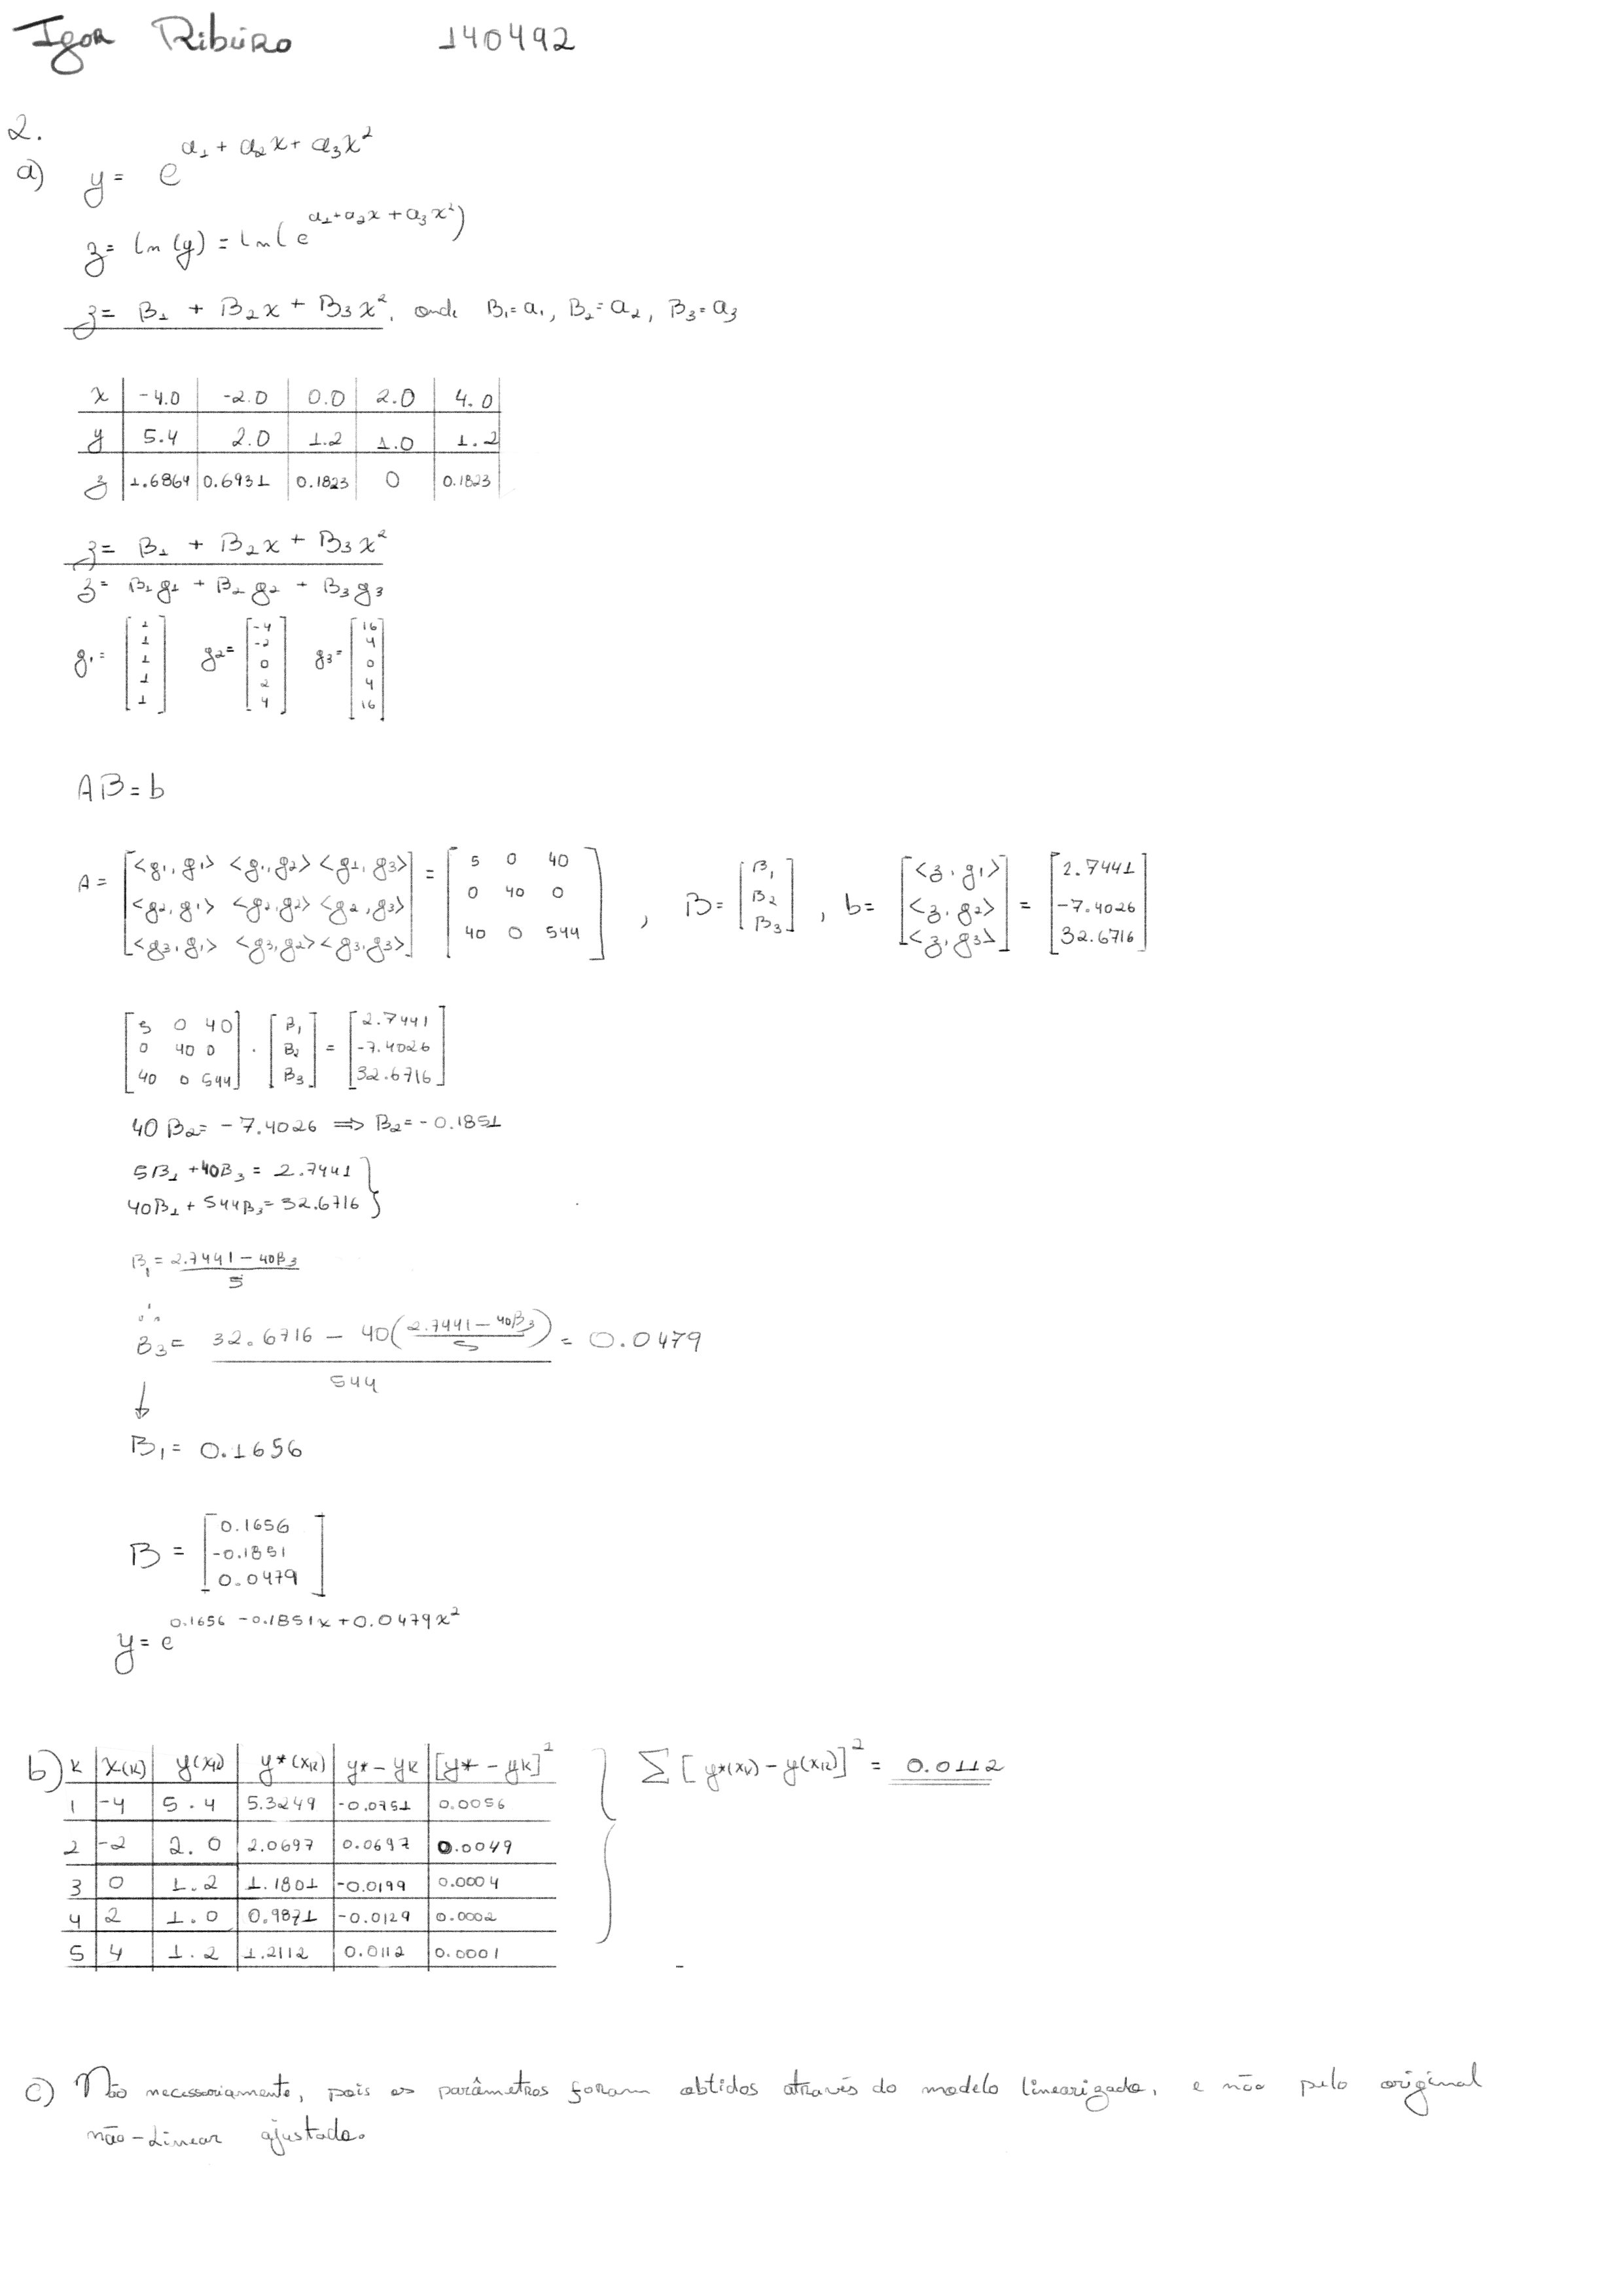 Igor Ribeiro 140492
2.
a) y = e^(a₁ + a₂x + a₃x²)
z = ln(y) = ln(e^(a₁+a₂x+a₃x²))
z = B₁ + B₂x + B₃x², onde B₁=a₁, B₂=a₂, B₃=a₃
x | -4.0 | -2.0 | 0.0 | 2.0 | 4.0
y | 5.4 | 2.0 | 1.2 | 1.0 | 1.2
z | 1.6864 | 0.6931 | 0.1823 | 0 | 0.1823
z = B₁ + B₂x + B₃x²
z = B₁g₁ + B₂g₂ + B₃g₃
g₁ = [1 1 1 1 1] g₂ = [-4 -2 0 2 4] g₃ = [16 4 0 4 16]
AB = b
A = [<g₁,g₁> <g₁,g₂> <g₁,g₃>; <g₂,g₁> <g₂,g₂> <g₂,g₃>; <g₃,g₁> <g₃,g₂> <g₃,g₃>] = [5 0 40; 0 40 0; 40 0 544], B = [B₁; B₂; B₃], b = [<z,g₁>; <z,g₂>; <z,g₃>] = [2.7441; -7.4026; 32.6716]
[5 0 40; 0 40 0; 40 0 544] · [B₁; B₂; B₃] = [2.7441; -7.4026; 32.6716]
40B₂ = -7.4026 ⇒ B₂ = -0.1851
5B₁ + 40B₃ = 2.7441 }
40B₁ + 544B₃ = 32.6716 }
B₁ = (2.7441 - 40B₃)/5
∴
B₃ = (32.6716 - 40((2.7441 - 40B₃)/5))/544 = 0.0479
↓
B₁ = 0.1656
B = [0.1656; -0.1851; 0.0479]
y = e^(0.1656 - 0.1851x + 0.0479x²)
b) k | x(k) | y(xk) | y*(xk) | y* - yk | [y* - yk]² } Σ[y*(xk) - y(xk)]² = 0.0112
1 | -4 | 5.4 | 5.3249 | -0.0751 | 0.0056
2 | -2 | 2.0 | 2.0697 | 0.0697 | 0.0049
3 | 0 | 1.2 | 1.1801 | -0.0199 | 0.0004
4 | 2 | 1.0 | 0.9871 | -0.0129 | 0.0002
5 | 4 | 1.2 | 1.2112 | 0.0112 | 0.0001
c) Não necessariamente, pois os parâmetros foram obtidos através do modelo linearizado, e não pelo original
não-linear ajustado.